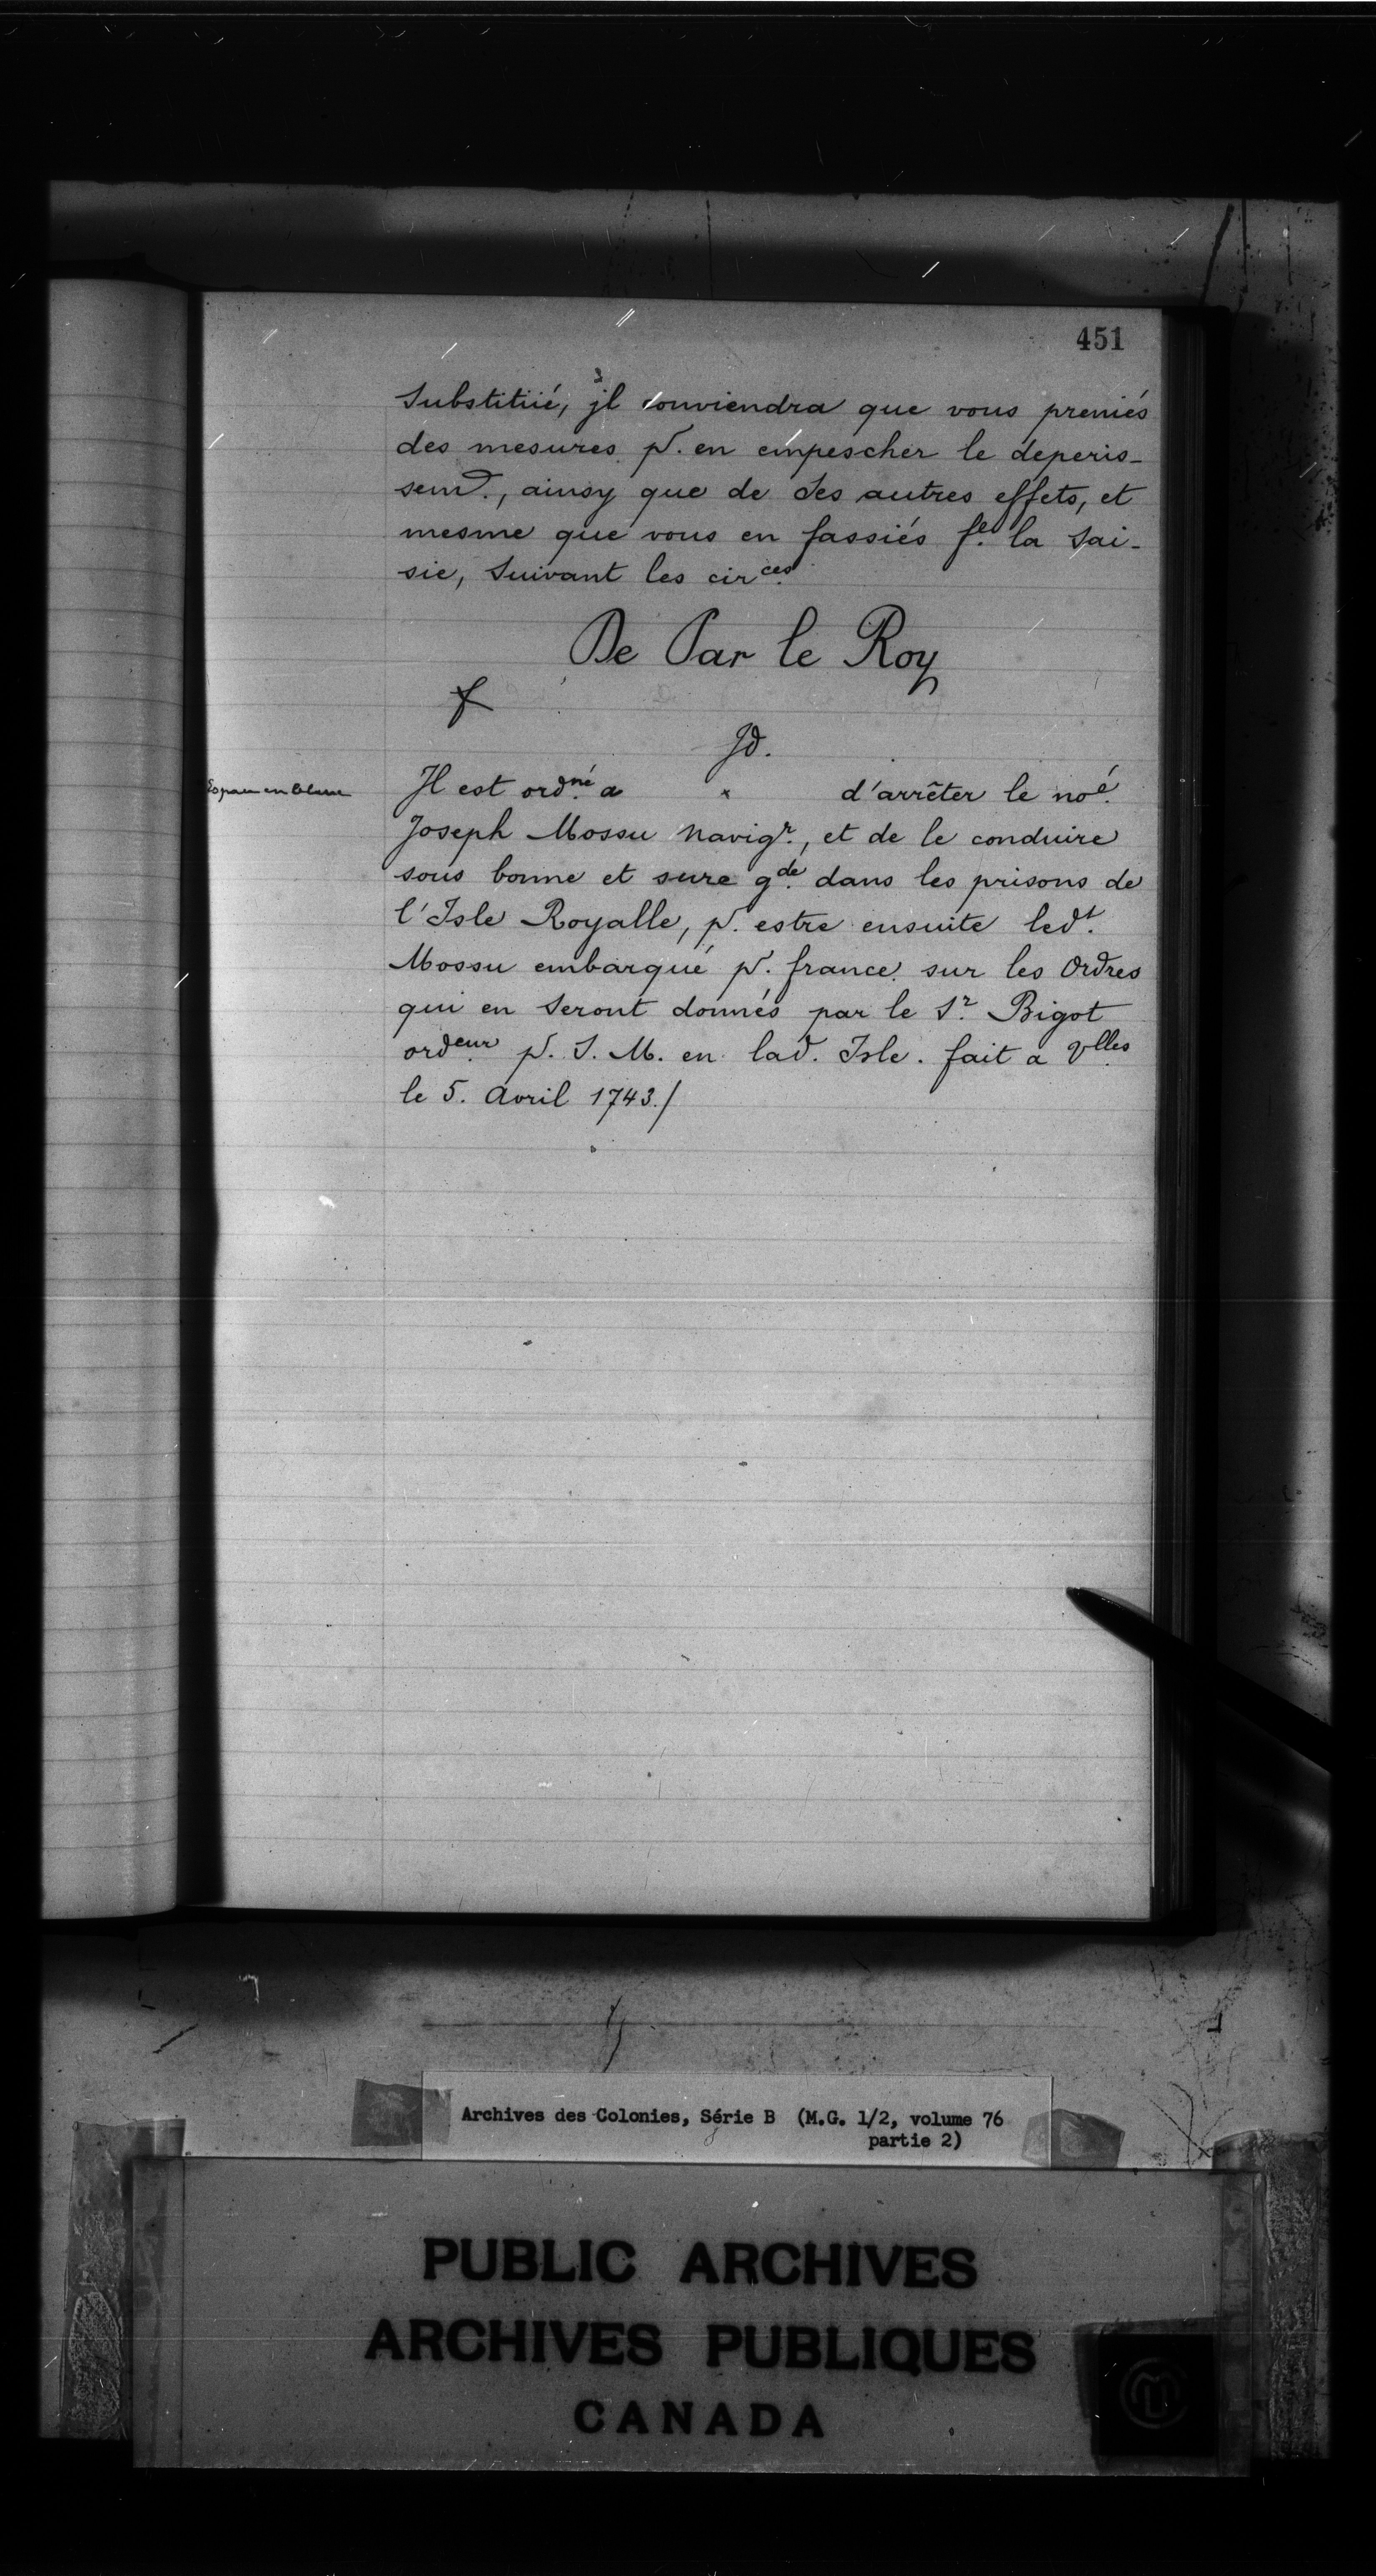 451
substitüé, jl conviendra que vous preniés
des mesures pr. en empescher le deperis-
semt., ainsy que de ses autres effets, et
mesme que vous en fassiés fe. la sai-
sie, suivant les circes.
De Par le Roy
Jd.
Espace en blanc
Jl est ordné. a × d'arrêter le noé.
Joseph Mossu navigr., et de le conduire
sous bonne et sure gde. dans les prisons de
l'Isle Royalle, pr. estre ensuite ledt.
Mossu embarqué pr. france sur les Ordres
qui en seront donnés par le Sr. Bigot
ordeur. pr. S. M. en lad. Isle. fait a Vlles.
le 5. avril 1743./
Archives des Colonies, Série B (M.G. 1/2, volume 76
partie 2)
PUBLIC ARCHIVES
ARCHIVES PUBLIQUES
CANADA